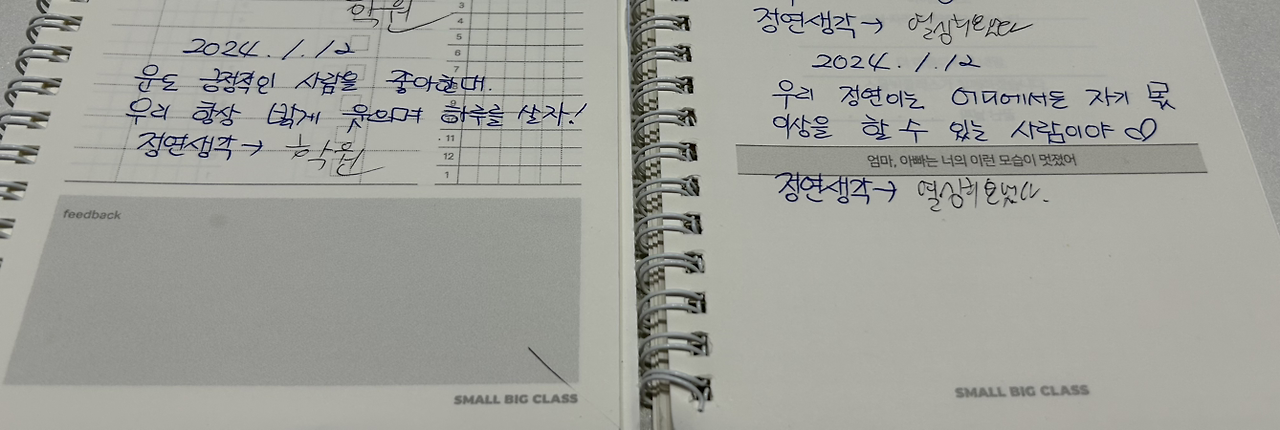 학원
3
4
2024. 1. 12
5
6
운도 긍정적인 사람을 좋아한대.
7
우리 항상 밝게 웃으며 하루를 살자!
정연생각→ 학원
11
12
1
feedback
SMALL BIG CLASS
정연생각→ 열심히 하였다
2024. 1. 12
우리 정연이는 어디에서든 자기 몫
이상을 할 수 있는 사람이야 ♡
엄마, 아빠는 너의 이런 모습이 멋졌어
정연생각→
SMALL BIG CLASS